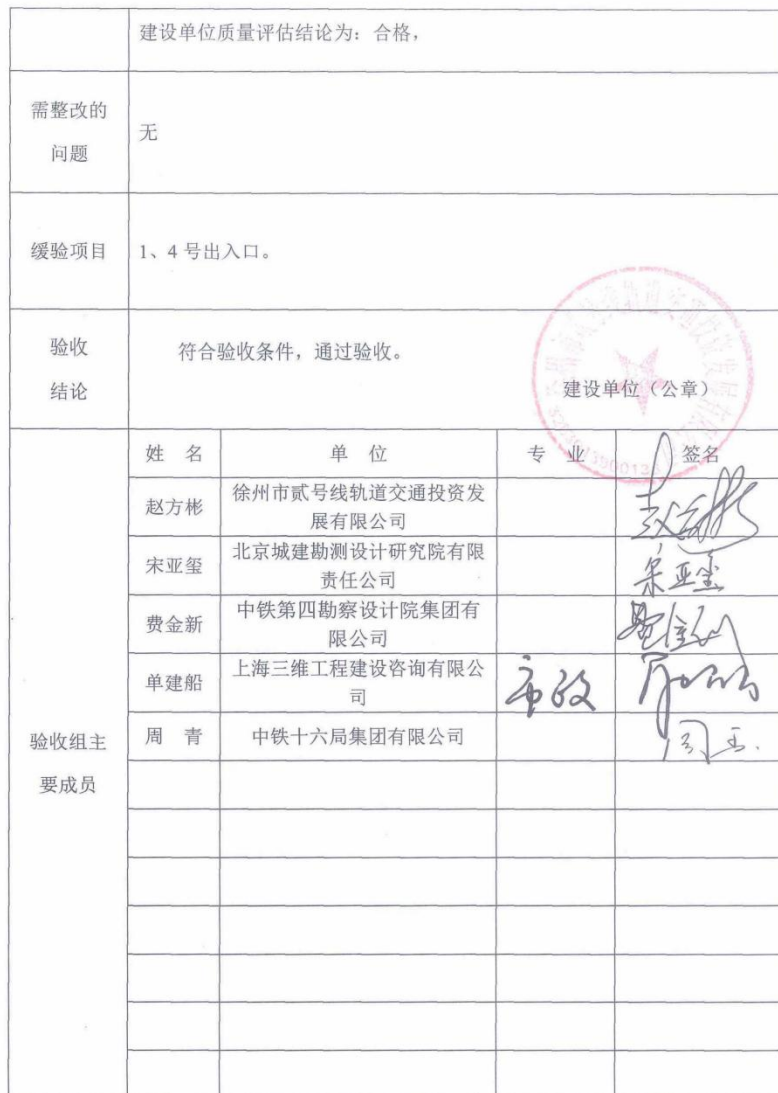 建设单位质量评估结论为：合格，
需整改的
问题
无
缓验项目
1、4 号出入口。
验收
结论
符合验收条件，通过验收。
建设单位（公章）
验收组主
要成员
姓 名 单 位 专 业 签名
赵方彬 徐州市贰号线轨道交通投资发
展有限公司
宋亚玺 北京城建勘测设计研究院有限
责任公司 宋亚玺
费金新 中铁第四勘察设计院集团有
限公司
单建船 上海三维工程建设咨询有限公
司 市政
周 青 中铁十六局集团有限公司